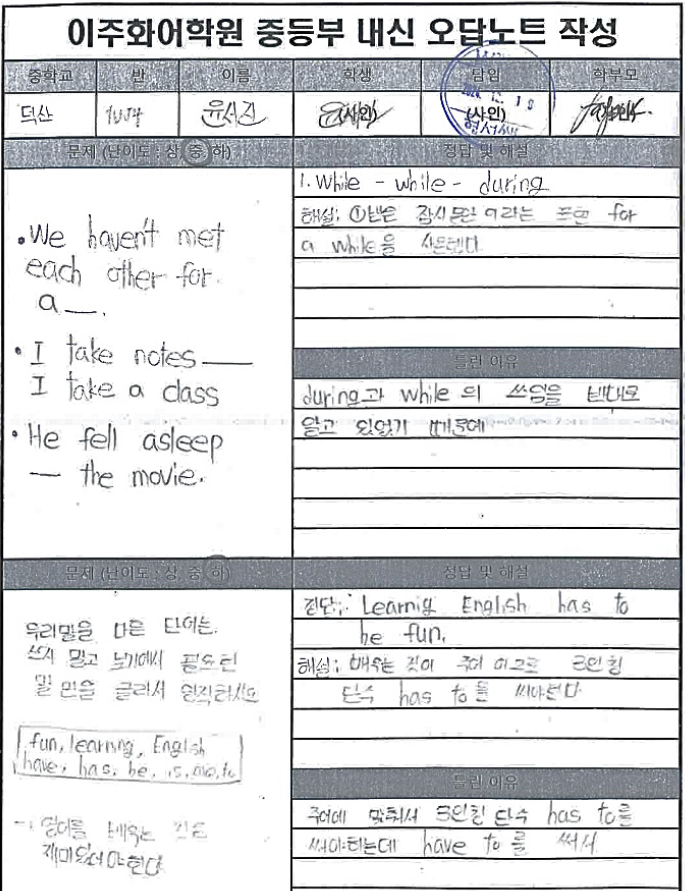 이주화어학원 중등부 내신 오답노트 작성
중학교 반 이름 학생 담임 학부모
덕산 윤서진 (사인) (사인)
문제 (난이도 : 상 중 하)
정답 및 해설
• We haven't met
each other for
a __.
• I take notes ___
I take a class
• He fell asleep
— the movie.
1. While - while - during
해설; ①번은 잠시동안 이라는 표현 for
a while을 사용했다
틀린 이유
during과 while 의 쓰임을 반대로
알고 있었기 때문에
문제 (난이도 : 상 중 하)
정답 및 해설
우리말을 다른 단어는
쓰지 말고 보기에서 필요한
말 만을 골라서 영작하시오
fun, learning, English
have, has, be, is, to
→ 영어를 배우는 것은
재미있어야 한다
정답; Learnig English has to
be fun.
해설; 배우는 것이 주어 이므로 3인칭
단수 has to를 써야한다
틀린 이유
주어에 맞춰서 3인칭 단수 has to를
써야하는데 have to를 써서